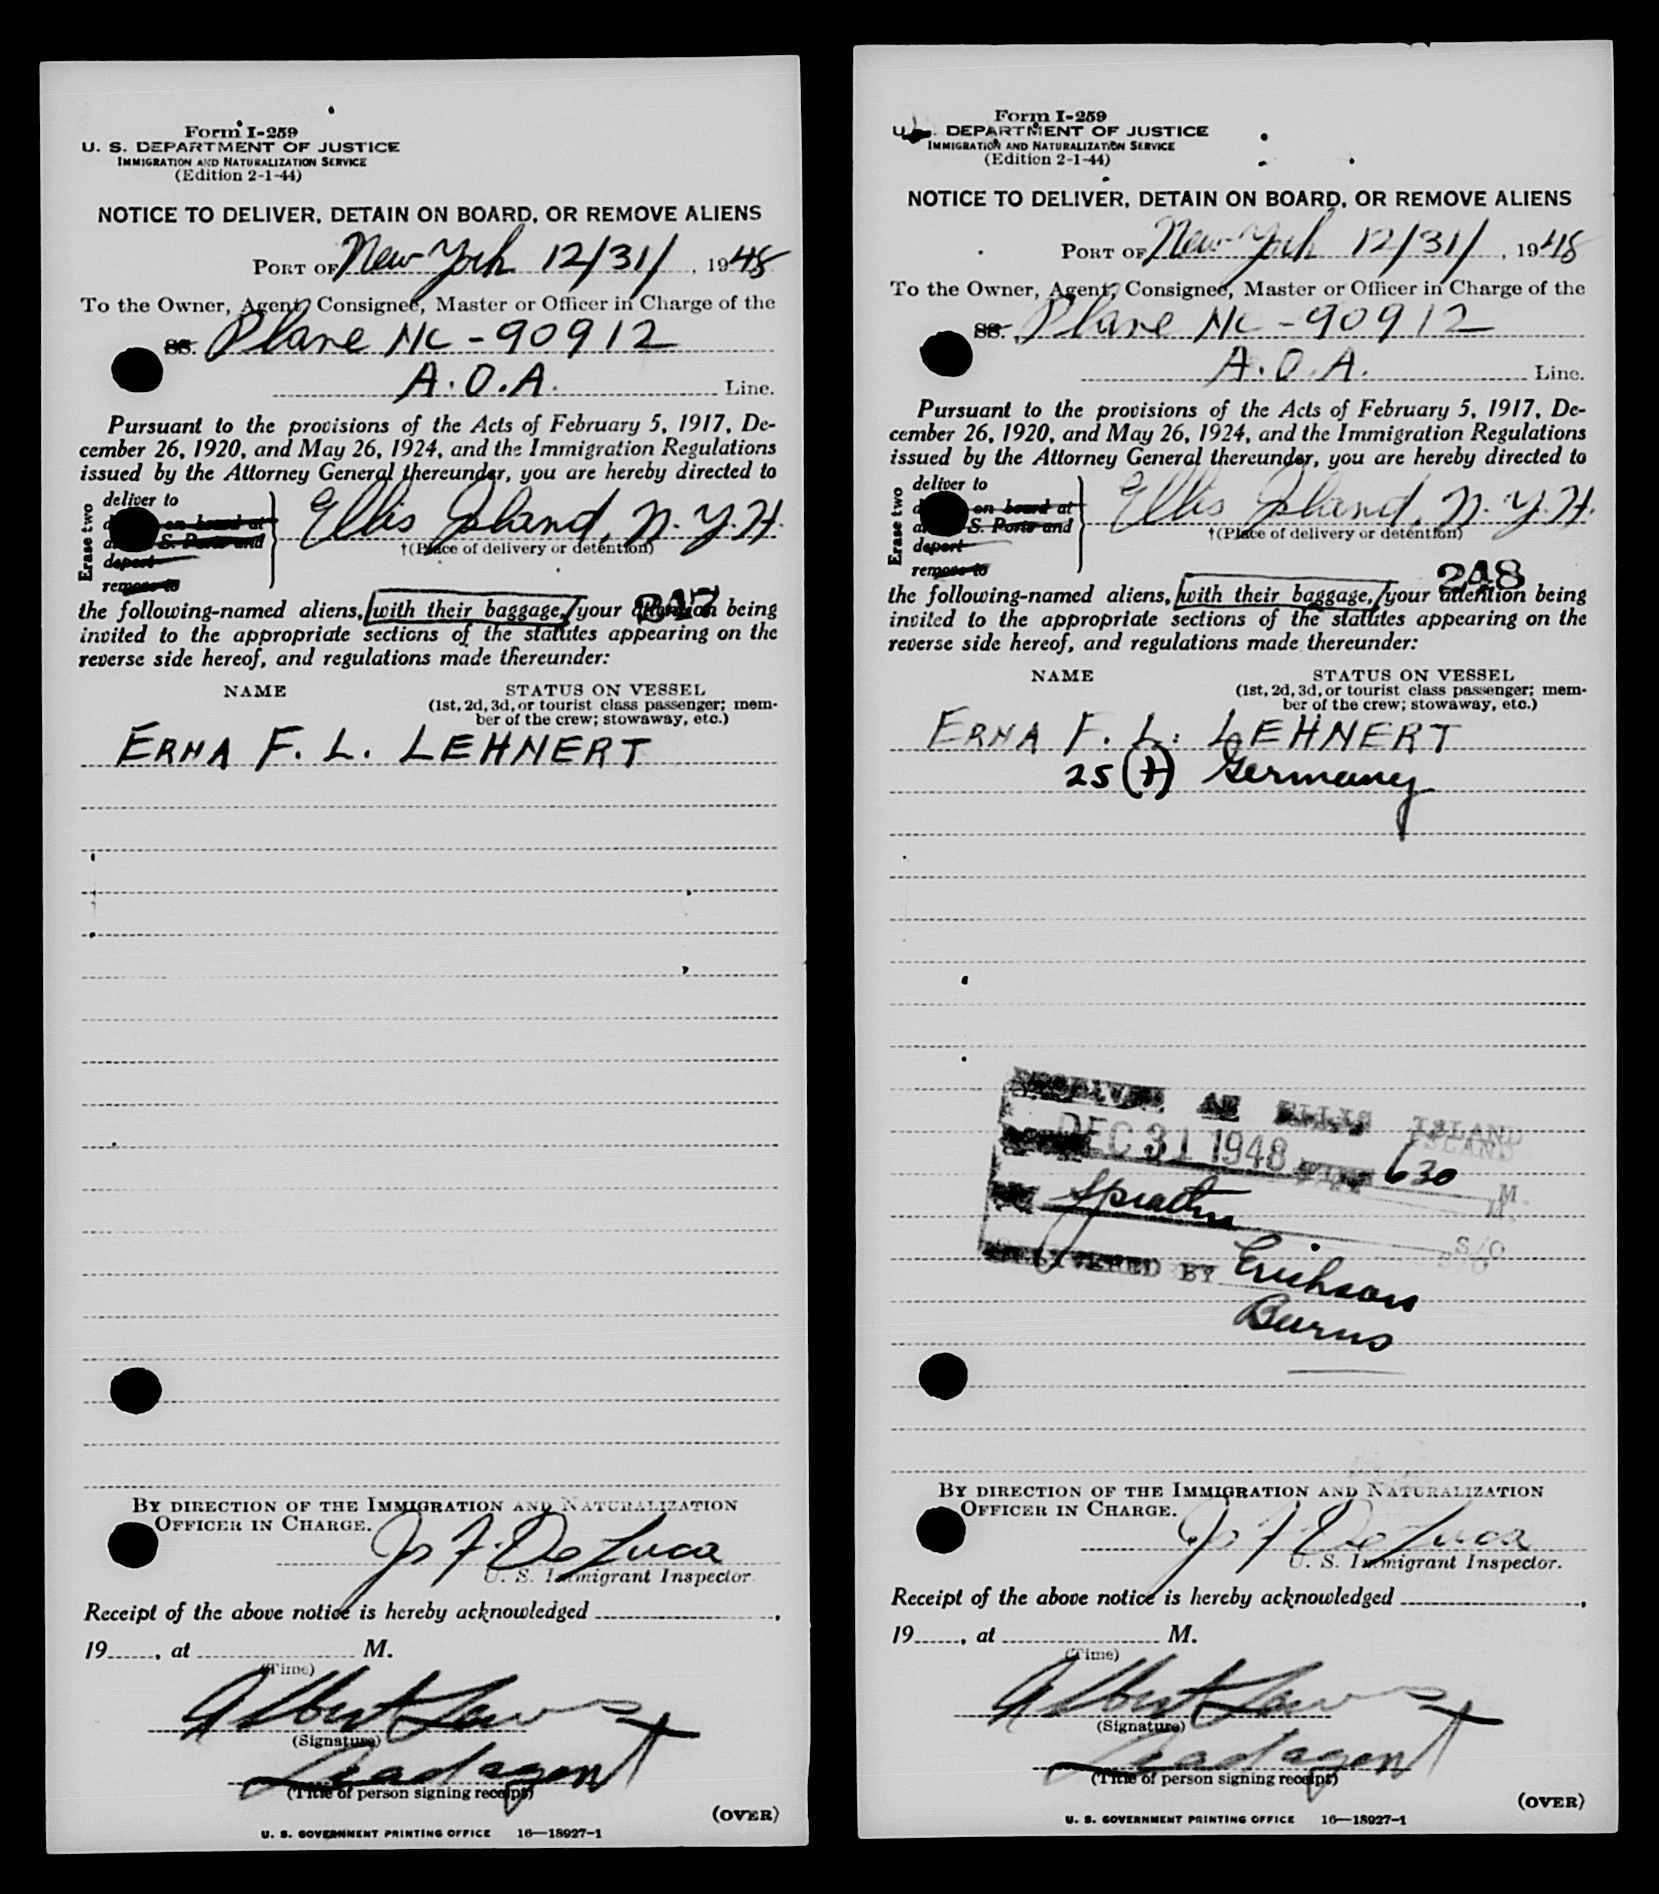 Form I-259
U. S. DEPARTMENT OF JUSTICE
IMMIGRATION AND NATURALIZATION SERVICE
(Edition 2-1-44)
NOTICE TO DELIVER, DETAIN ON BOARD, OR REMOVE ALIENS
PORT OF New York 12/31/, 1948
To the Owner, Agent, Consignee, Master or Officer in Charge of the
SS. Plane NC-90912
A.O.A. Line.
Pursuant to the provisions of the Acts of February 5, 1917, De-
cember 26, 1920, and May 26, 1924, and the Immigration Regulations
issued by the Attorney General thereunder, you are hereby directed to
Erase two
deliver to
on board at
S. Ports and
deport
remove to
Ellis Island, N.Y.H.
†(Place of delivery or detention)
247
the following-named aliens, with their baggage, your attention being
invited to the appropriate sections of the statutes appearing on the
reverse side hereof, and regulations made thereunder:
NAME STATUS ON VESSEL
(1st, 2d, 3d, or tourist class passenger; mem-
ber of the crew; stowaway, etc.)
ERNA F. L. LEHNERT
BY DIRECTION OF THE IMMIGRATION AND NATURALIZATION
OFFICER IN CHARGE.
Jo F. De Luca
U. S. Immigrant Inspector.
Receipt of the above notice is hereby acknowledged ,
19 , at M.
(Time)
Albert
(Signature)
(Title of person signing receipt)
(OVER)
U. S. GOVERNMENT PRINTING OFFICE 16—18927-1
Form I-259
U. S. DEPARTMENT OF JUSTICE
IMMIGRATION AND NATURALIZATION SERVICE
(Edition 2-1-44)
NOTICE TO DELIVER, DETAIN ON BOARD, OR REMOVE ALIENS
PORT OF New York 12/31/, 1948
To the Owner, Agent, Consignee, Master or Officer in Charge of the
SS. Plane NC-90912
A.O.A. Line.
Pursuant to the provisions of the Acts of February 5, 1917, De-
cember 26, 1920, and May 26, 1924, and the Immigration Regulations
issued by the Attorney General thereunder, you are hereby directed to
Erase two
deliver to
on board at
S. Ports and
deport
remove to
Ellis Island, N.Y.H.
†(Place of delivery or detention)
248
the following-named aliens, with their baggage, your attention being
invited to the appropriate sections of the statutes appearing on the
reverse side hereof, and regulations made thereunder:
NAME STATUS ON VESSEL
(1st, 2d, 3d, or tourist class passenger; mem-
ber of the crew; stowaway, etc.)
ERNA F. L. LEHNERT
25 (f) Germany
RECEIVED AT ELLIS ISLAND
DEC 31 1948 630 M.
S/O
DELIVERED BY Erickson
Burns
BY DIRECTION OF THE IMMIGRATION AND NATURALIZATION
OFFICER IN CHARGE.
Jo F. De Luca
U. S. Immigrant Inspector.
Receipt of the above notice is hereby acknowledged ,
19 , at M.
(Time)
Albert
(Signature)
(Title of person signing receipt)
(OVER)
U. S. GOVERNMENT PRINTING OFFICE 16—18927-1